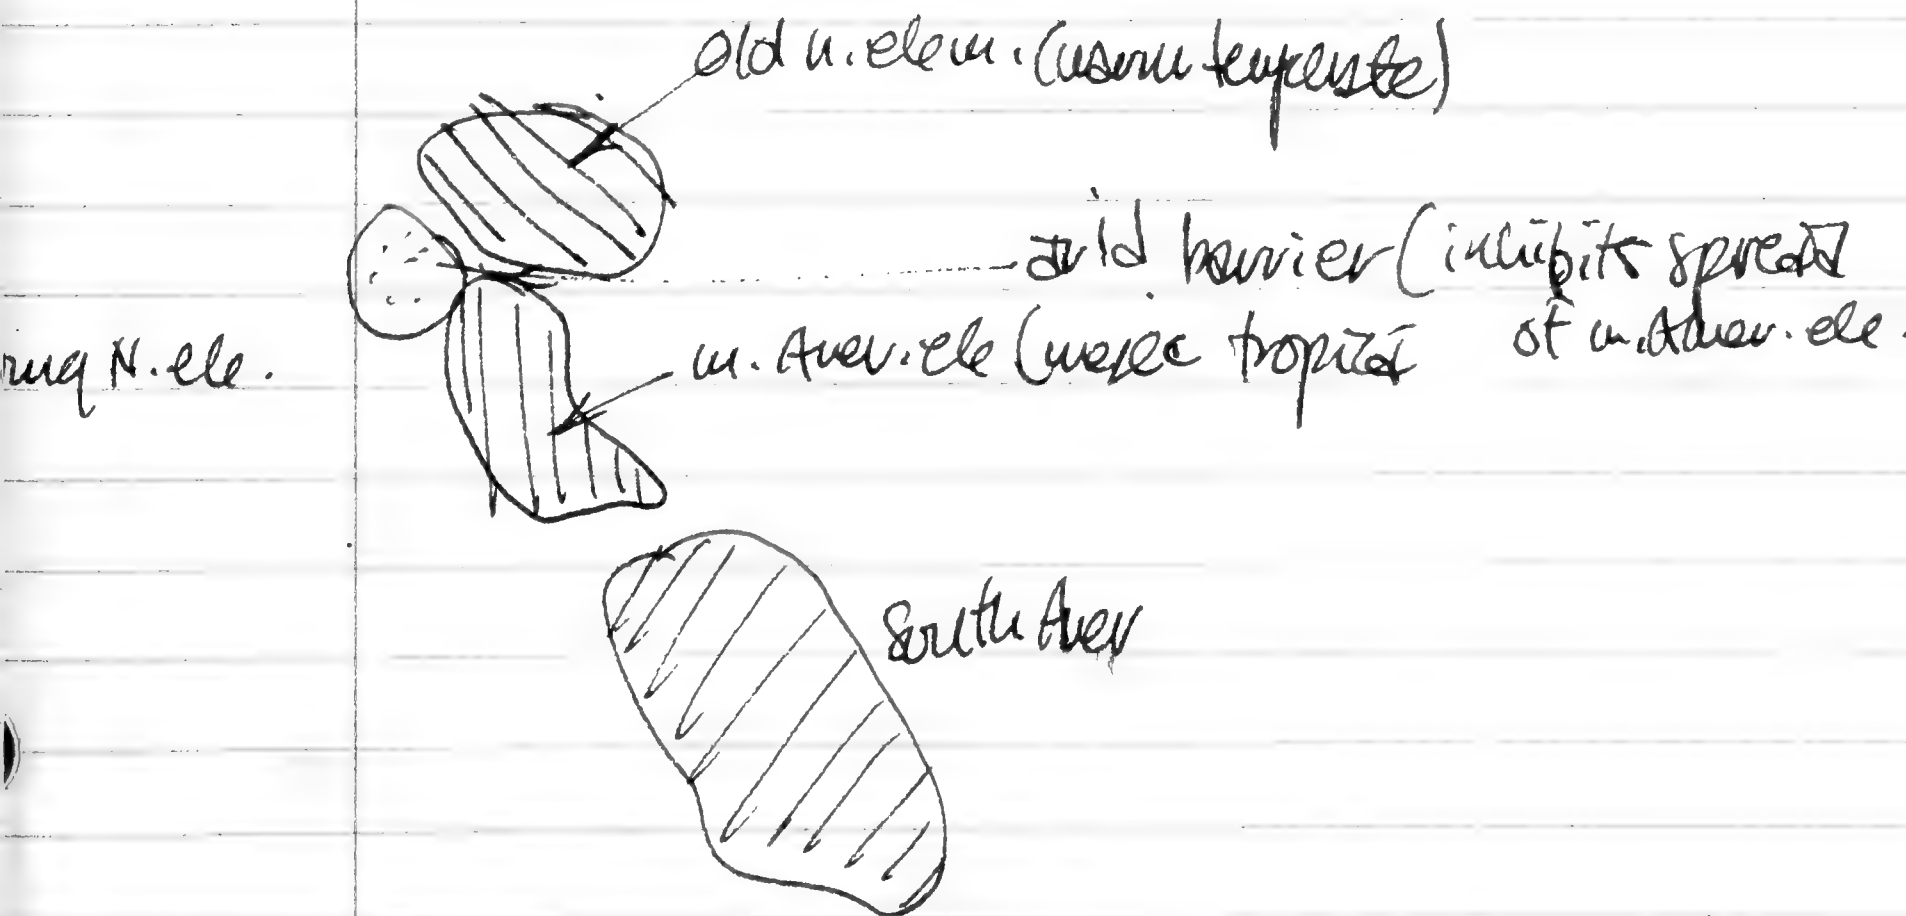 old n. elem. (warm temperate)
arid barrier (inhibits spread
of m. Amer. ele.
N. ele.
m. Amer. ele ( tropical
South Amer